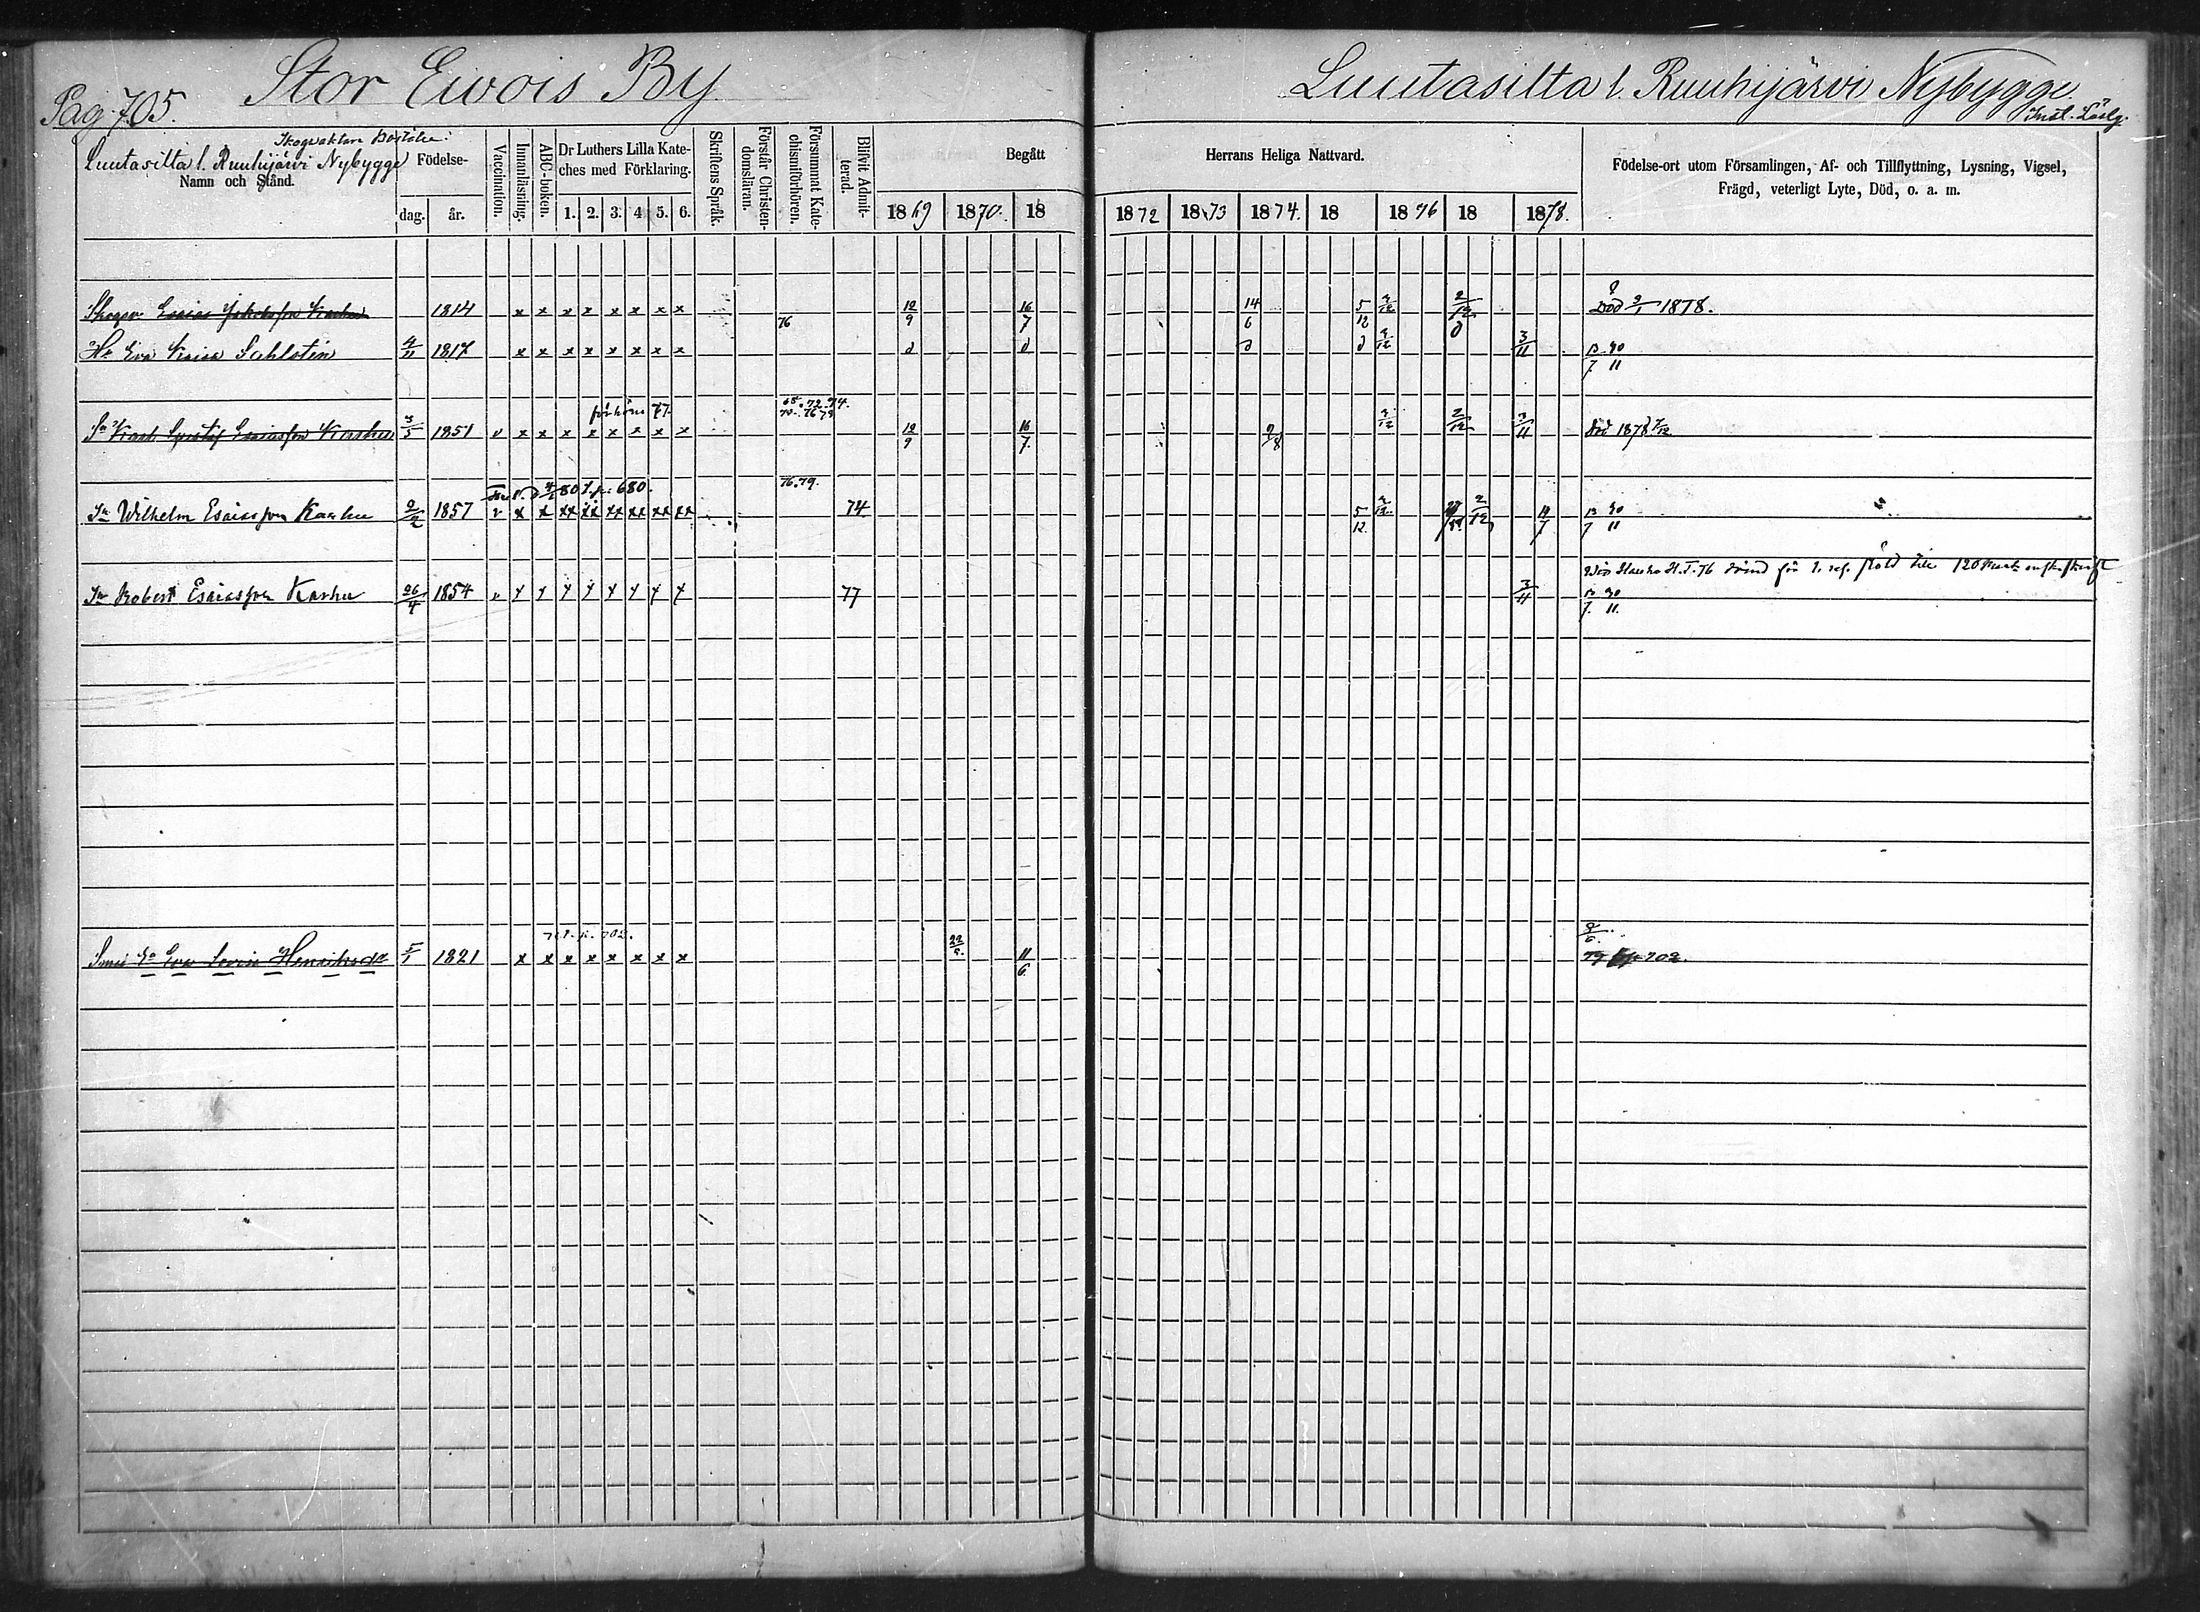 Stor Ewois By
Luutasilta l. Ruuhijärvi Nybygge
Pag. 705.
Inst. Läslg.
Skogvaktare Boställe.
Luutasilta l. Ruuhijärvi Nybygge
Namn och Stånd.
Födelse-
dag. år.
Vaccination.
Innanläsning.
ABC-boken.
Dr Luthers Lilla Kate-
ches med Förklaring.
1. 2. 3. 4. 5. 6.
Skriftens Språk.
Förstår Christen-
domsläran.
Försummat Kate-
chismiförhören.
Blifvit Admit-
terad.
Begått Herrans Heliga Nattvard.
1869 1870. 18 1872 1873 1874. 18 1876 18 1878.
Födelse-ort utom Församlingen, Af- och Tillflyttning, Lysning, Vigsel,
Frägd, veterligt Lyte, Död, o. a. m.
Skogv. Esaias Jakobsson Karhu 1814 x x x x x x x x 76 12/9 16/7 14/6 5/12 2/12 2/12 Död 2/1 1878.
Hu Eva Kaisa Sahlstén 4/11 1817 x x x x x x x x d d d d 2/12 d 3/11 13/7 90/11
förhöras 77.
68. 72. 74.
70. 76 79
Sn Karl Gustaf Esaiasson Karhu 3/5 1851 v x x x x x x x x 12/9 16/7 9/8 2/12 2/12 3/11 Död 1878 7/12
76. 79.
Sn Wilhelm Esaiasson Karhu 2/2 1857 v x x xx xx xx xx xx xx 74 5/12 2/12 2/12 13/7 90/11
Sn Robert Esaiasson Karhu 26/4 1854 77 3/11 13/7 90/11
p. 702.
Eva Lovisa Henriksdr 5/1 1821 x x x x x x x x 22/9 11/6
79 702.